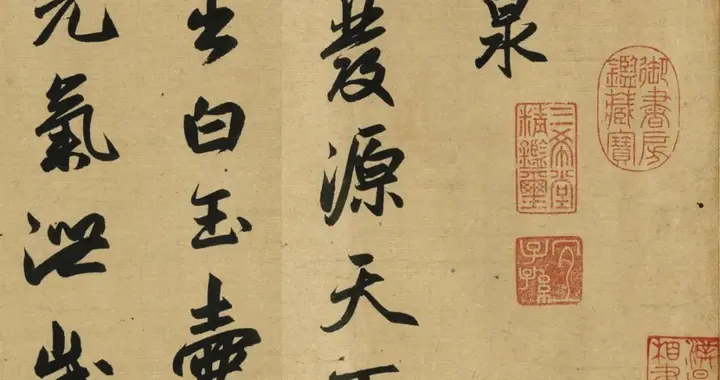 御書房鑑藏寶
三希堂精鑑璽
宜子孫
泉
發源天
出白玉壺
元氣泄歲